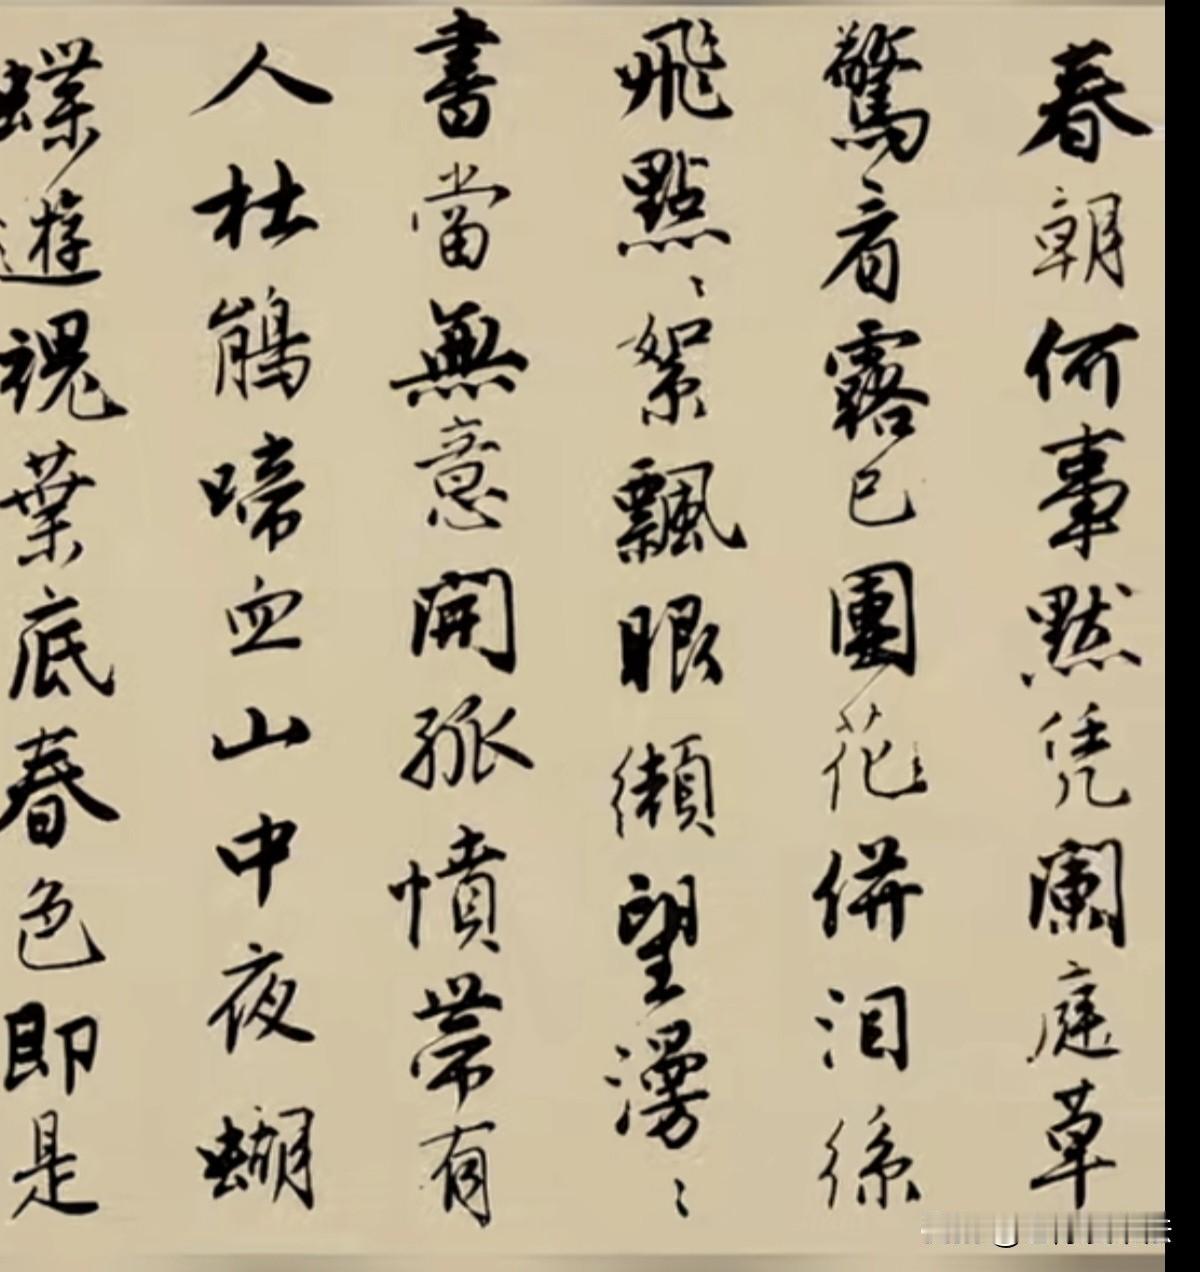 春朝何事默凭闌庭草
驚看露已團花併泪係
飛點〻絮飄眼纈望漫〻
書當無意開孤憤帶有
人杜鵑啼血山中夜蝴
蝶遊魂葉底春色即是